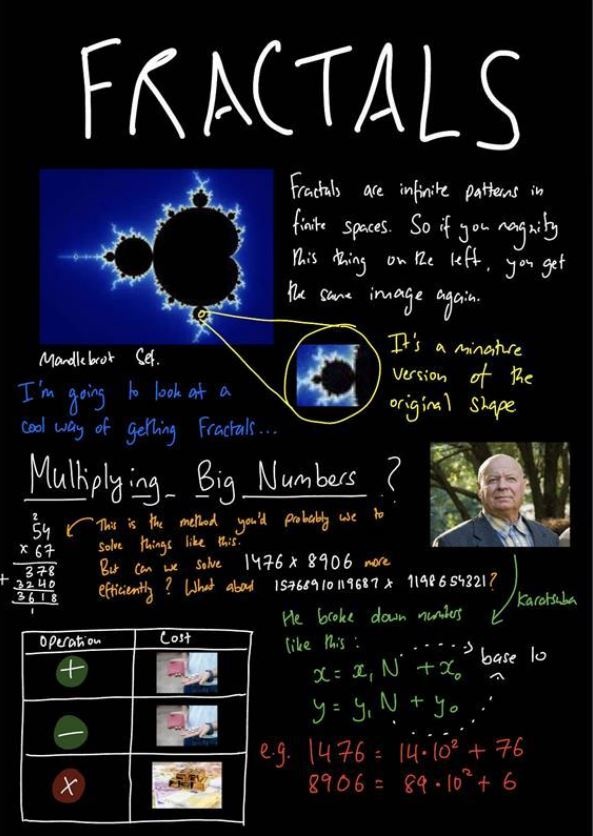 FRACTALS
Fractals are infinite patterns in
finite spaces. So if you magnify
this thing on the left, you get
the same image again.
Mandlebrot Set.
It's a minature
version of the
original shape
I'm going to look at a
cool way of getting Fractals...
Multiplying Big Numbers ?
2
54
× 67
378
+ 3240
3618
1
This is the method you'd probably use to
solve things like this.
But can we solve 1476 × 8906 more
efficiently? What about 15766910119687 × 1198654321?
Karatsuba
He broke down numbers
like this :
x = x₁N + x₀
y = y₁N + y₀
base 10
e.g. 1476 = 14·10² + 76
8906 = 89·10² + 6
Operation Cost
+
−
×